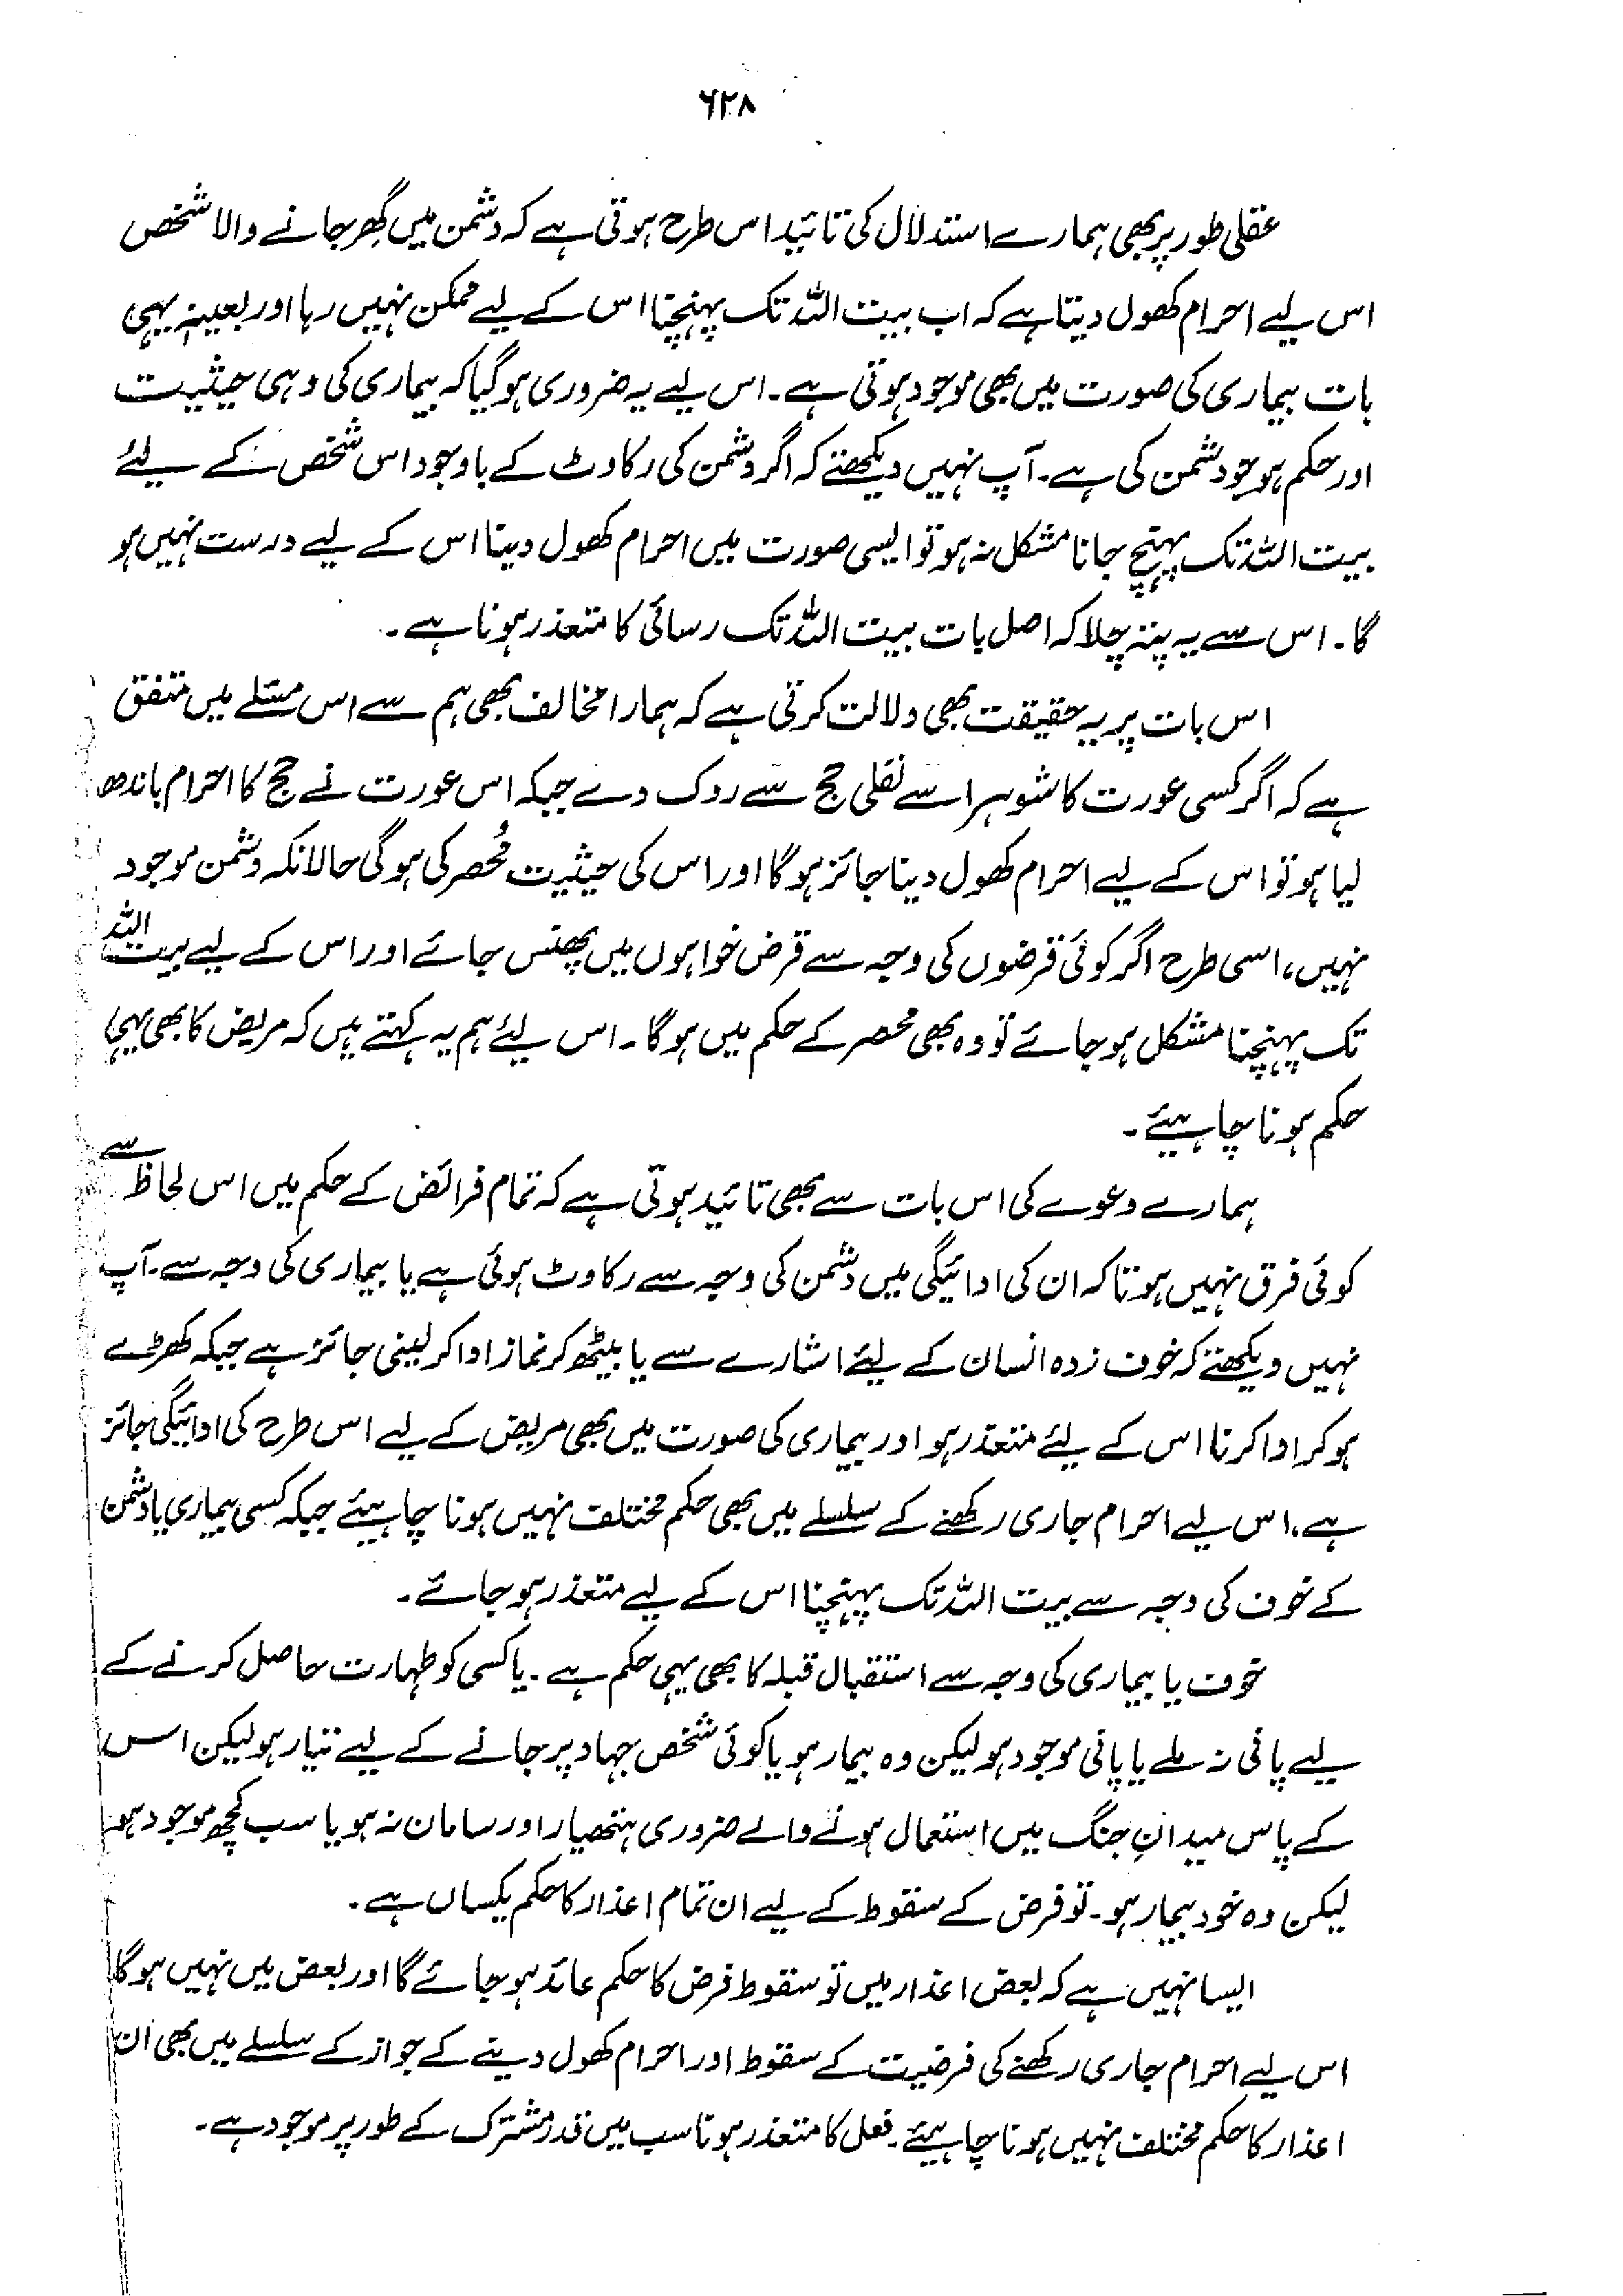 ۶۲۸
عقلی طور پر بھی ہمارے استدلال کی تائید اس طرح ہوتی ہے کہ دشمن میں گھِر جانے والا شخص
اس لیے احرام کھول دیتا ہے کہ اب بیت اللہ تک پہنچنا اس کے لیے ممکن نہیں رہا اور بعینہٖ یہی
بات بیماری کی صورت میں بھی موجود ہوتی ہے۔ اس لیے یہ ضروری ہو گیا کہ بیماری کی وہی حیثیت
اور حکم ہو جو دشمن کی ہے۔ آپ نہیں دیکھتے کہ اگر دشمن کی رکاوٹ کے باوجود اس شخص کے لیئے
بیت اللہ تک پہنچ جانا مشکل نہ ہو تو ایسی صورت میں احرام کھول دینا اس کے لیے درست نہیں ہو
گا۔ اس سے یہ پتہ چلا کہ اصل بات بیت اللہ تک رسائی کا متعذر ہونا ہے۔
اس بات پر یہ حقیقت بھی دلالت کرتی ہے کہ ہمارا مخالف بھی ہم سے اس مسئلے میں متفق
ہے کہ اگر کسی عورت کا شوہر اسے نفلی حج سے روک دے جبکہ اس عورت نے حج کا احرام باندھ
لیا ہو تو اس کے لیے احرام کھول دینا جائز ہوگا اور اس کی حیثیت مُحصر کی ہوگی حالانکہ دشمن موجود
نہیں، اسی طرح اگر کوئی قرضوں کی وجہ سے قرض خواہوں میں پھنس جائے اور اس کے لیے بیت اللہ
تک پہنچنا مشکل ہو جائے تو وہ بھی محصر کے حکم میں ہوگا۔ اس لیئے ہم یہ کہتے ہیں کہ مریض کا بھی یہی
حکم ہونا چاہیئے۔
ہمارے دعوے کی اس بات سے بھی تائید ہوتی ہے کہ تمام فرائض کے حکم میں اس لحاظ سے
کوئی فرق نہیں ہوتا کہ ان کی ادائیگی میں دشمن کی وجہ سے رکاوٹ ہوئی ہے یا بیماری کی وجہ سے۔ آپ
نہیں دیکھتے کہ خوف زدہ انسان کے لیئے اشارے سے یا بیٹھ کر نماز ادا کر لینی جائز ہے جبکہ کھڑے
ہو کر ادا کرنا اس کے لیئے متعذر ہو اور بیماری کی صورت میں بھی مریض کے لیے اس طرح کی ادائیگی جائز
ہے، اس لیے احرام جاری رکھنے کے سلسلے میں بھی حکم مختلف نہیں ہونا چاہیئے جبکہ کسی بیماری یا دشمن
کے خوف کی وجہ سے بیت اللہ تک پہنچنا اس کے لیے متعذر ہو جائے۔
خوف یا بیماری کی وجہ سے استقبال قبلہ کا بھی یہی حکم ہے۔ یا کسی کو طہارت حاصل کرنے کے
لیے پانی نہ ملے یا پانی موجود ہو لیکن وہ بیمار ہو یا کوئی شخص جہاد پر جانے کے لیے تیار ہو لیکن اس
کے پاس میدانِ جنگ میں استعمال ہونے والے ضروری ہتھیار اور سامان نہ ہو یا سب کچھ موجود ہو
لیکن وہ خود بیمار ہو۔ تو فرض کے سقوط کے لیے ان تمام اعذار کا حکم یکساں ہے۔
ایسا نہیں ہے کہ بعض اعذار میں تو سقوط فرض کا حکم عائد ہو جائے گا اور بعض میں نہیں ہوگا
اس لیے احرام جاری رکھنے کی فرضیت کے سقوط اور احرام کھول دینے کے جواز کے سلسلے میں بھی ان
اعذار کا حکم مختلف نہیں ہونا چاہیئے۔ فعل کا متعذر ہونا سب میں قدر مشترک کے طور پر موجود ہے۔